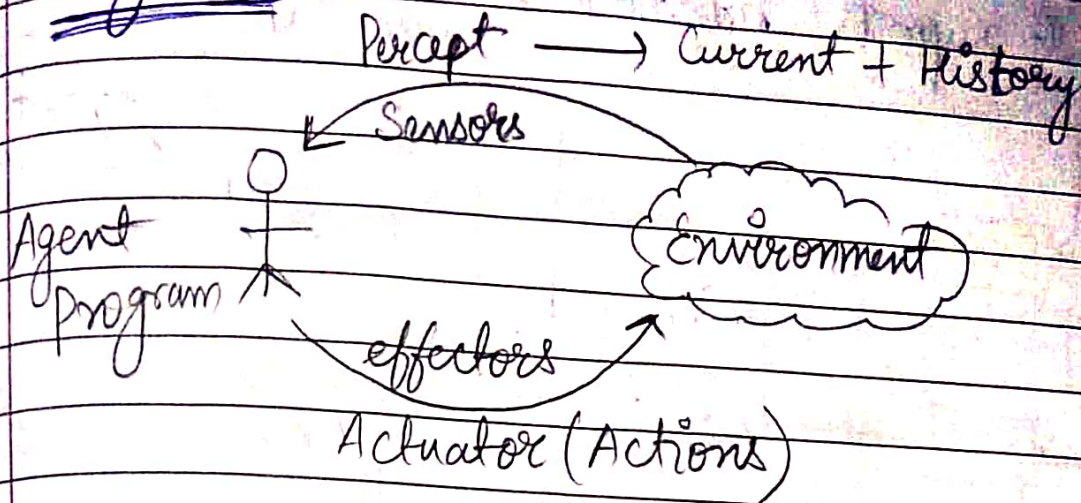 Percept → Current + History
Sensors
Agent
Program
Environment
effectors
Actuator (Actions)